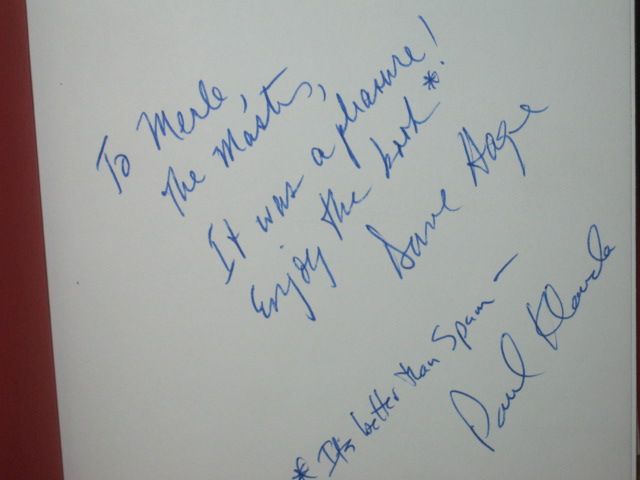 To Merle,
The Master,
It was a pleasure!
Enjoy the book*.
Dave Hage
* It's better than Spam —
Paul Klauda